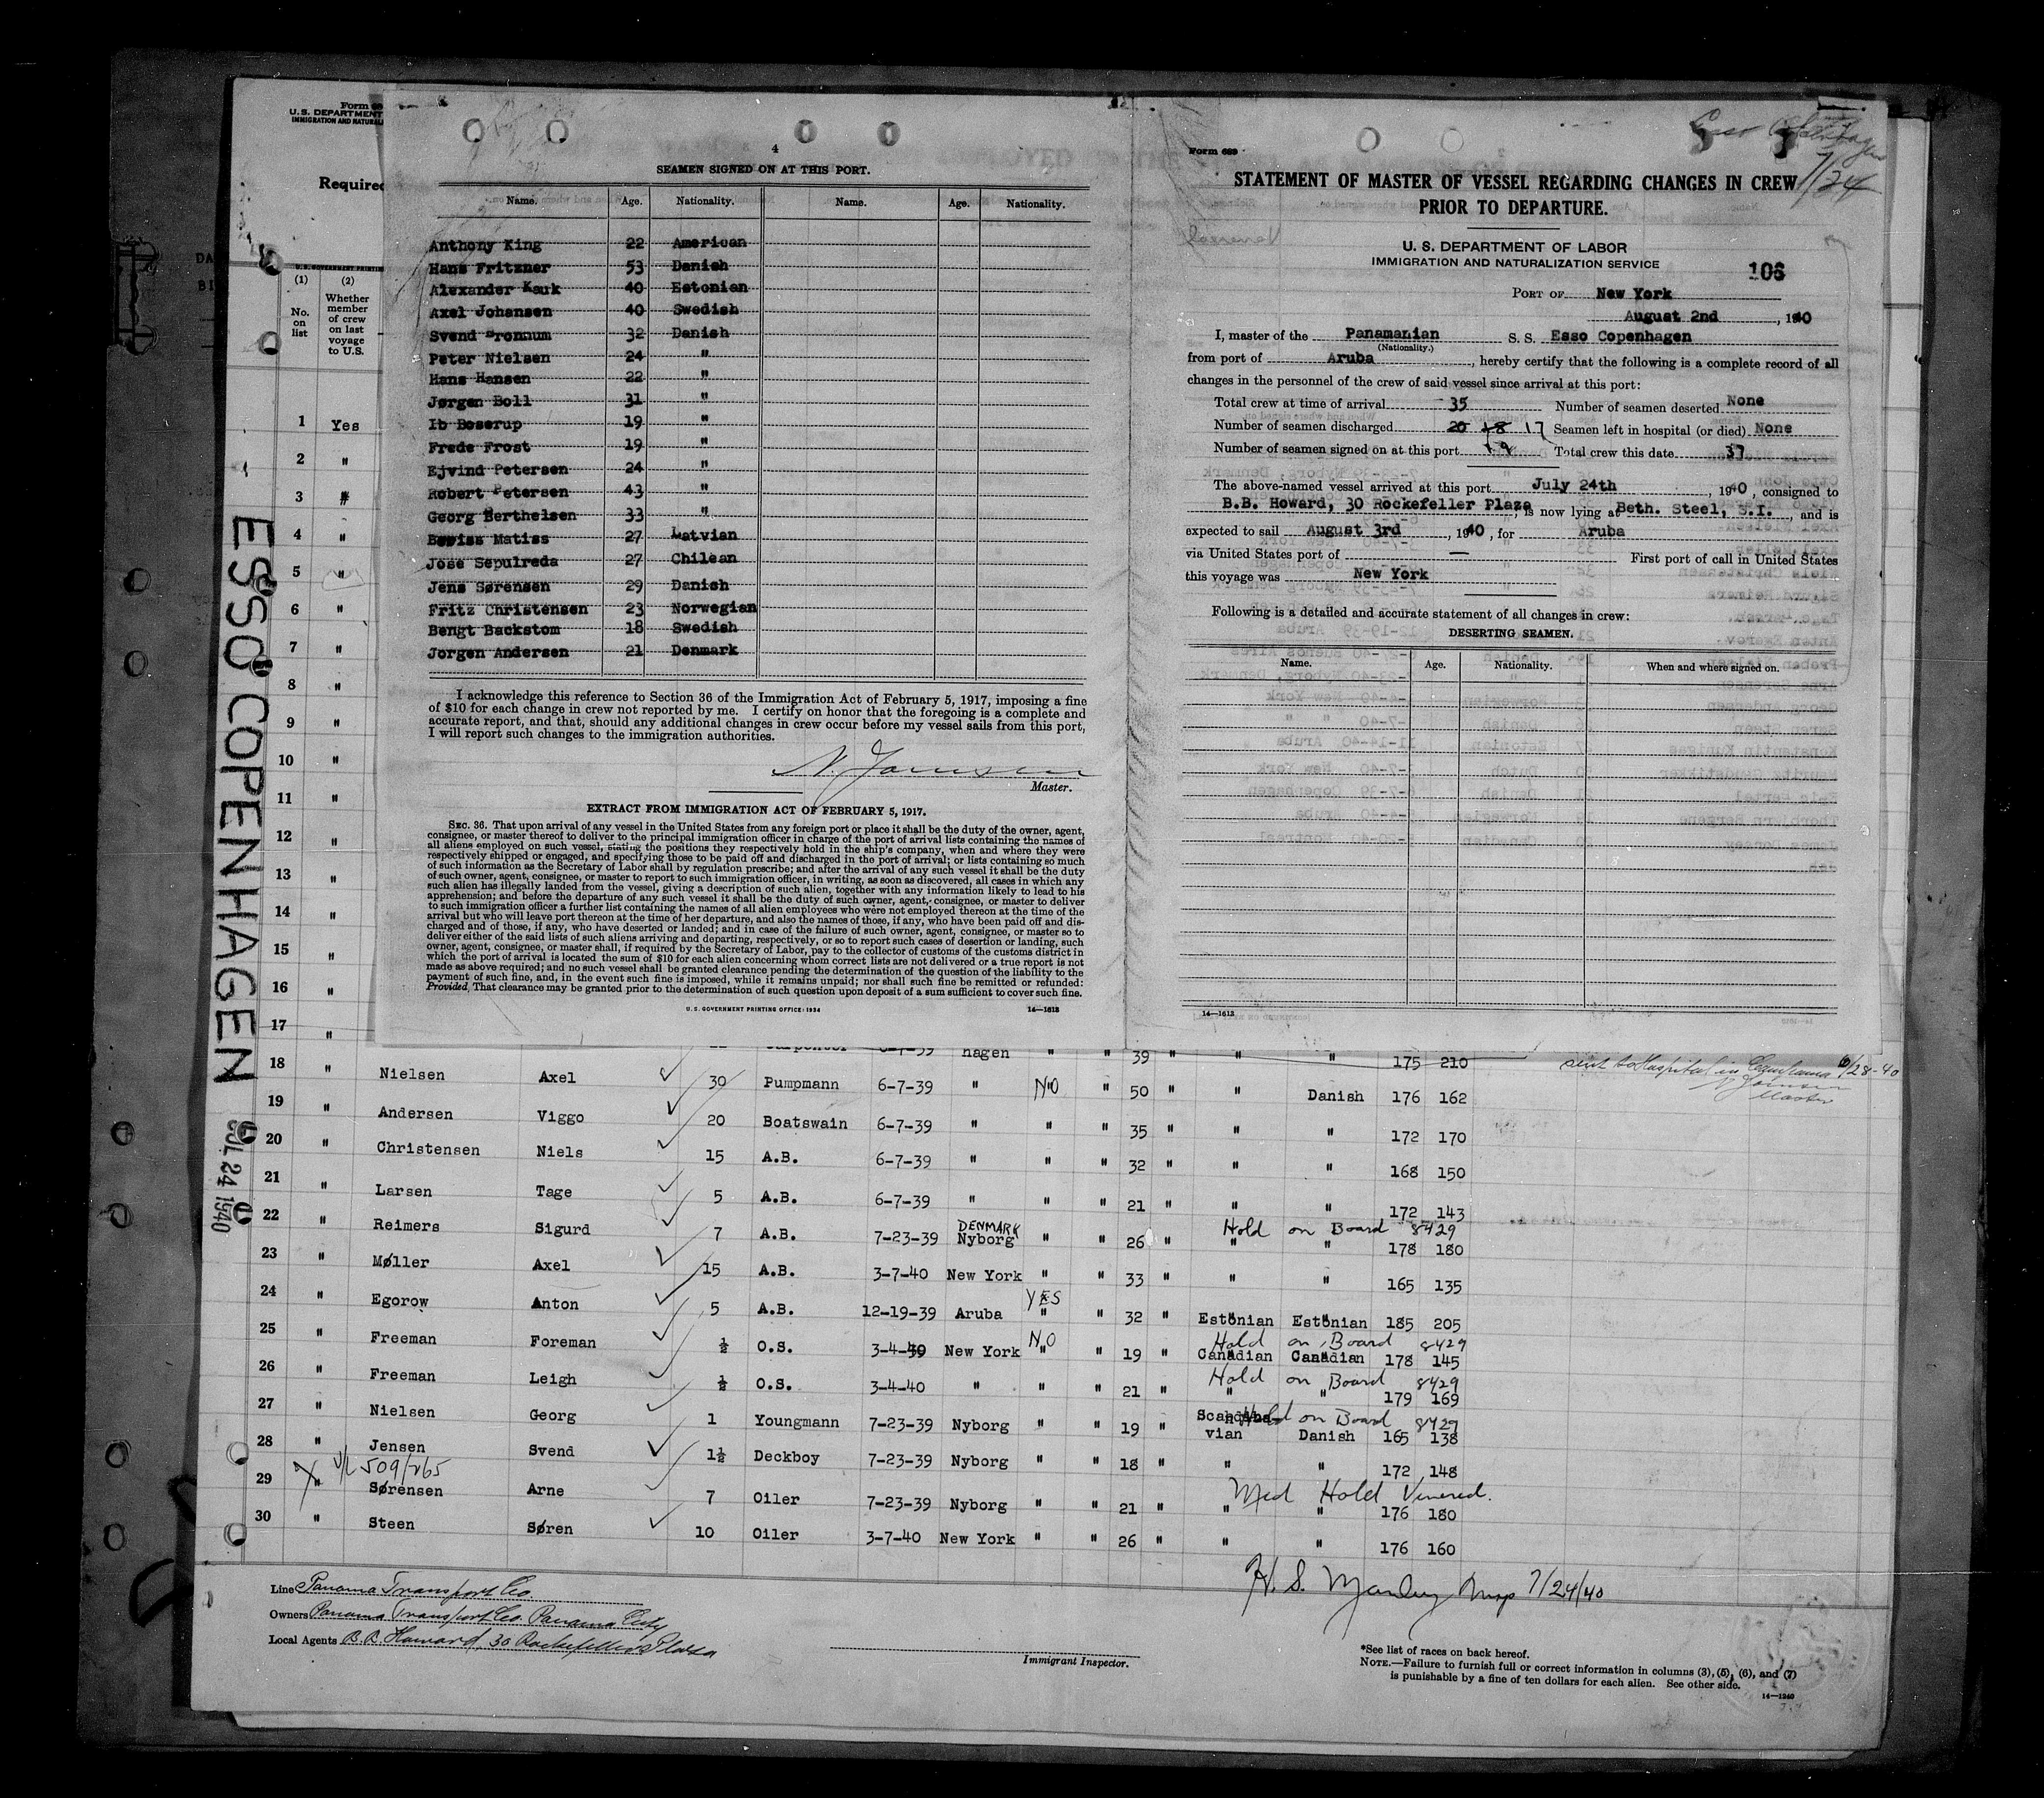 Form 68
U. S. DEPARTMENT
IMMIGRATION AND NATURAL
Required
U. S. GOVERNMENT PRINTING
(1) (2)
No. on list
Whether member of crew on last voyage to U.S.
1 Yes
2 "
3 "
4 "
5 "
6 "
7 "
8 "
9 "
10 "
11 "
12 "
13 "
14 "
15 "
16 "
17 "
ESSO COPENHAGEN
JUL 24 1940
4
SEAMEN SIGNED ON AT THIS PORT.
Name. Age. Nationality. Name. Age. Nationality.
Anthony King 22 American
Hans Fritzner 53 Danish
Alexander Kauk 40 Estonian
Axel Johansen 40 Swedish
Svend Bronnum 32 Danish
Peter Nielsen 24 "
Hans Hansen 22 "
Jørgen Boll 31 "
Ib Boserup 19 "
Frede Frost 19 "
Ejvind Petersen 24 "
Robert Petersen 43 "
Georg Berthelsen 33 "
Matiss 27 Latvian
Jose Sepulreda 27 Chilean
Jens Sørensen 29 Danish
Fritz Christensen 23 Norwegian
Bengt Backstom 18 Swedish
Jorgen Andersen 21 Denmark
I acknowledge this reference to Section 36 of the Immigration Act of February 5, 1917, imposing a fine
of $10 for each change in crew not reported by me. I certify on honor that the foregoing is a complete and
accurate report, and that, should any additional changes in crew occur before my vessel sails from this port,
I will report such changes to the immigration authorities.
Master.
EXTRACT FROM IMMIGRATION ACT OF FEBRUARY 5, 1917.
SEC. 36. That upon arrival of any vessel in the United States from any foreign port or place it shall be the duty of the owner, agent,
consignee, or master thereof to deliver to the principal immigration officer in charge of the port of arrival lists containing the names of
all aliens employed on such vessel, stating the positions they respectively hold in the ship's company, when and where they were
respectively shipped or engaged, and specifying those to be paid off and discharged in the port of arrival; or lists containing so much
of such information as the Secretary of Labor shall by regulation prescribe; and after the arrival of any such vessel it shall be the duty
of such owner, agent, consignee, or master to report to such immigration officer, in writing, as soon as discovered, all cases in which any
such alien has illegally landed from the vessel, giving a description of such alien, together with any information likely to lead to his
apprehension; and before the departure of any such vessel it shall be the duty of such owner, agent, consignee, or master to deliver
to such immigration officer a further list containing the names of all alien employees who were not employed thereon at the time of the
arrival but who will leave port thereon at the time of her departure, and also the names of those, if any, who have been paid off and dis-
charged and of those, if any, who have deserted or landed; and in case of the failure of such owner, agent, consignee, or master so to
deliver either of the said lists of such aliens arriving and departing, respectively, or so to report such cases of desertion or landing, such
owner, agent, consignee, or master shall, if required by the Secretary of Labor, pay to the collector of customs of the customs district in
which the port of arrival is located the sum of $10 for each alien concerning whom correct lists are not delivered or a true report is not
made as above required; and no such vessel shall be granted clearance pending the determination of the question of the liability to the
payment of such fine, and, in the event such fine is imposed, while it remains unpaid; nor shall such fine be remitted or refunded:
Provided, That clearance may be granted prior to the determination of such question upon deposit of a sum sufficient to cover such fine.
U. S. GOVERNMENT PRINTING OFFICE: 1934 14—1613
Form 689
Esso Copenhagen
7/24
STATEMENT OF MASTER OF VESSEL REGARDING CHANGES IN CREW
PRIOR TO DEPARTURE.
U. S. DEPARTMENT OF LABOR
IMMIGRATION AND NATURALIZATION SERVICE
106
PORT OF New York
August 2nd, 1940
I, master of the Panamanian S. S. Esso Copenhagen
(Nationality.)
from port of Aruba, hereby certify that the following is a complete record of all
changes in the personnel of the crew of said vessel since arrival at this port:
Total crew at time of arrival 35 Number of seamen deserted None
Number of seamen discharged 20 18 17 Seamen left in hospital (or died) None
Number of seamen signed on at this port 19 Total crew this date 37
The above-named vessel arrived at this port July 24th, 1940, consigned to
B.B. Howard, 30 Rockefeller Plaza, is now lying at Beth. Steel, S.I., and is
expected to sail August 3rd, 1940, for Aruba
via United States port of — First port of call in United States
this voyage was New York
Following is a detailed and accurate statement of all changes in crew:
DESERTING SEAMEN.
Name. Age. Nationality. When and where signed on.
14—1613
Carpenter 6-7-39 hagen " " 39 " " " 175 210
sent to Hospital in 6/28-40
Master
18 " Nielsen Axel 30 Pumpmann 6-7-39 " NO " 50 " " Danish 176 162
19 " Andersen Viggo 20 Boatswain 6-7-39 " " " 35 " " " 172 170
20 " Christensen Niels 15 A.B. 6-7-39 " " " 32 " " " 168 150
21 " Larsen Tage 5 A.B. 6-7-39 " " " 21 " " " 172 143
Hold on Board 8429
22 " Reimers Sigurd 7 A.B. 7-23-39 DENMARK Nyborg " " 26 " " " 178 180
23 " Møller Axel 15 A.B. 3-7-40 New York " " 33 " " " 165 135
24 " Egorow Anton 5 A.B. 12-19-39 Aruba YES " " 32 " Estonian Estonian 185 205
Hold on Board 8429
25 " Freeman Foreman ½ O.S. 3-4-40 New York NO " " 19 " Canadian Canadian 178 145
Hold on Board 8429
26 " Freeman Leigh ½ O.S. 3-4-40 " " " 21 " " " 179 169
Hold on Board 8429
27 " Nielsen Georg 1 Youngmann 7-23-39 Nyborg " " 19 " Scandinavian Danish 165 138
28 " Jensen Svend 1½ Deckboy 7-23-39 Nyborg " " 18 " " " 172 148
V/L 509/265
Med Hold Venered.
29 " Sørensen Arne 7 Oiler 7-23-39 Nyborg " " 21 " " " 176 180
30 " Steen Søren 10 Oiler 3-7-40 New York " " 26 " " " 176 160
H. S. Manley Insp 7/24/40
Line Panama Transport Co.
Owners Panama Transport Co. Panama City
Local Agents B. B. Howard, 30 Rockefeller Plaza
Immigrant Inspector.
*See list of races on back hereof.
NOTE.—Failure to furnish full or correct information in columns (3), (5), (6), and (7)
is punishable by a fine of ten dollars for each alien. See other side.
14—1240